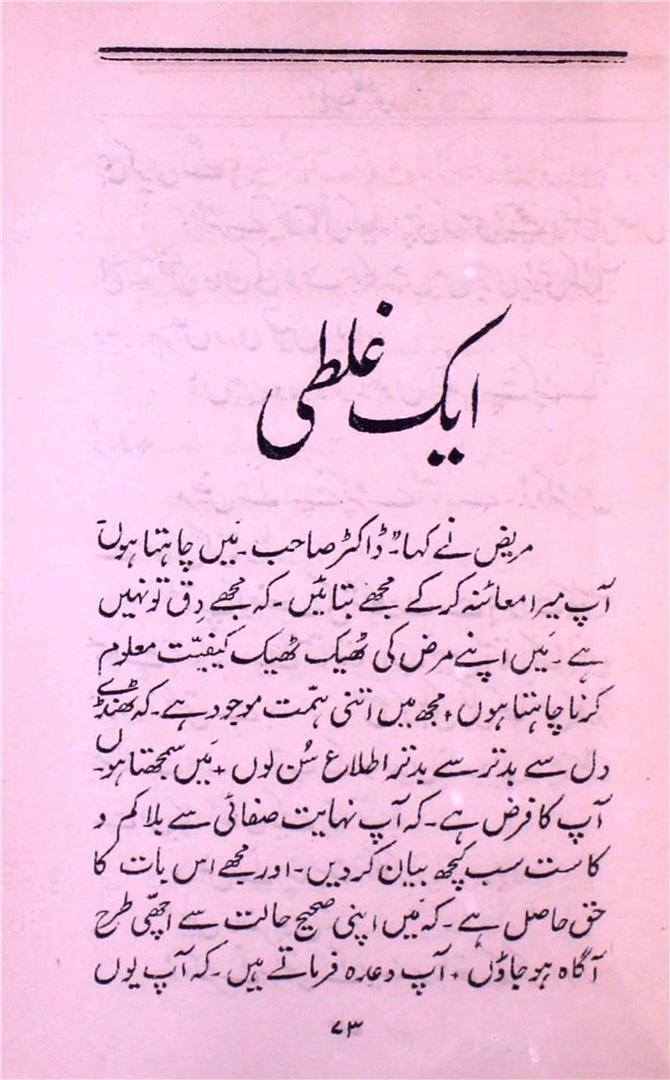 ایک غلطی
مریض نے کہا۔ "ڈاکٹر صاحب۔ مَیں چاہتا ہوں
آپ میرا معائنہ کر کے مجھے بتائیں۔ کہ مجھے دِق تو نہیں
ہے۔ مَیں اپنے مرض کی ٹھیک ٹھیک کیفیّت معلوم
کرنا چاہتا ہوں۔ مجھ میں اتنی ہمّت موجود ہے۔ کہ ٹھنڈے
دل سے بدتر سے بدتر اطلاع سُن لوں۔ مَیں سمجھتا ہوں۔
آپ کا فرض ہے۔ کہ آپ نہایت صفائی سے بلا کم و
کاست سب کچھ بیان کر دیں۔ اور مجھے اس بات کا
حق حاصل ہے۔ کہ مَیں اپنی صحیح حالت سے اچھّی طرح
آگاہ ہو جاؤں۔ آپ وعدہ فرماتے ہیں۔ کہ آپ یوں
۷۳